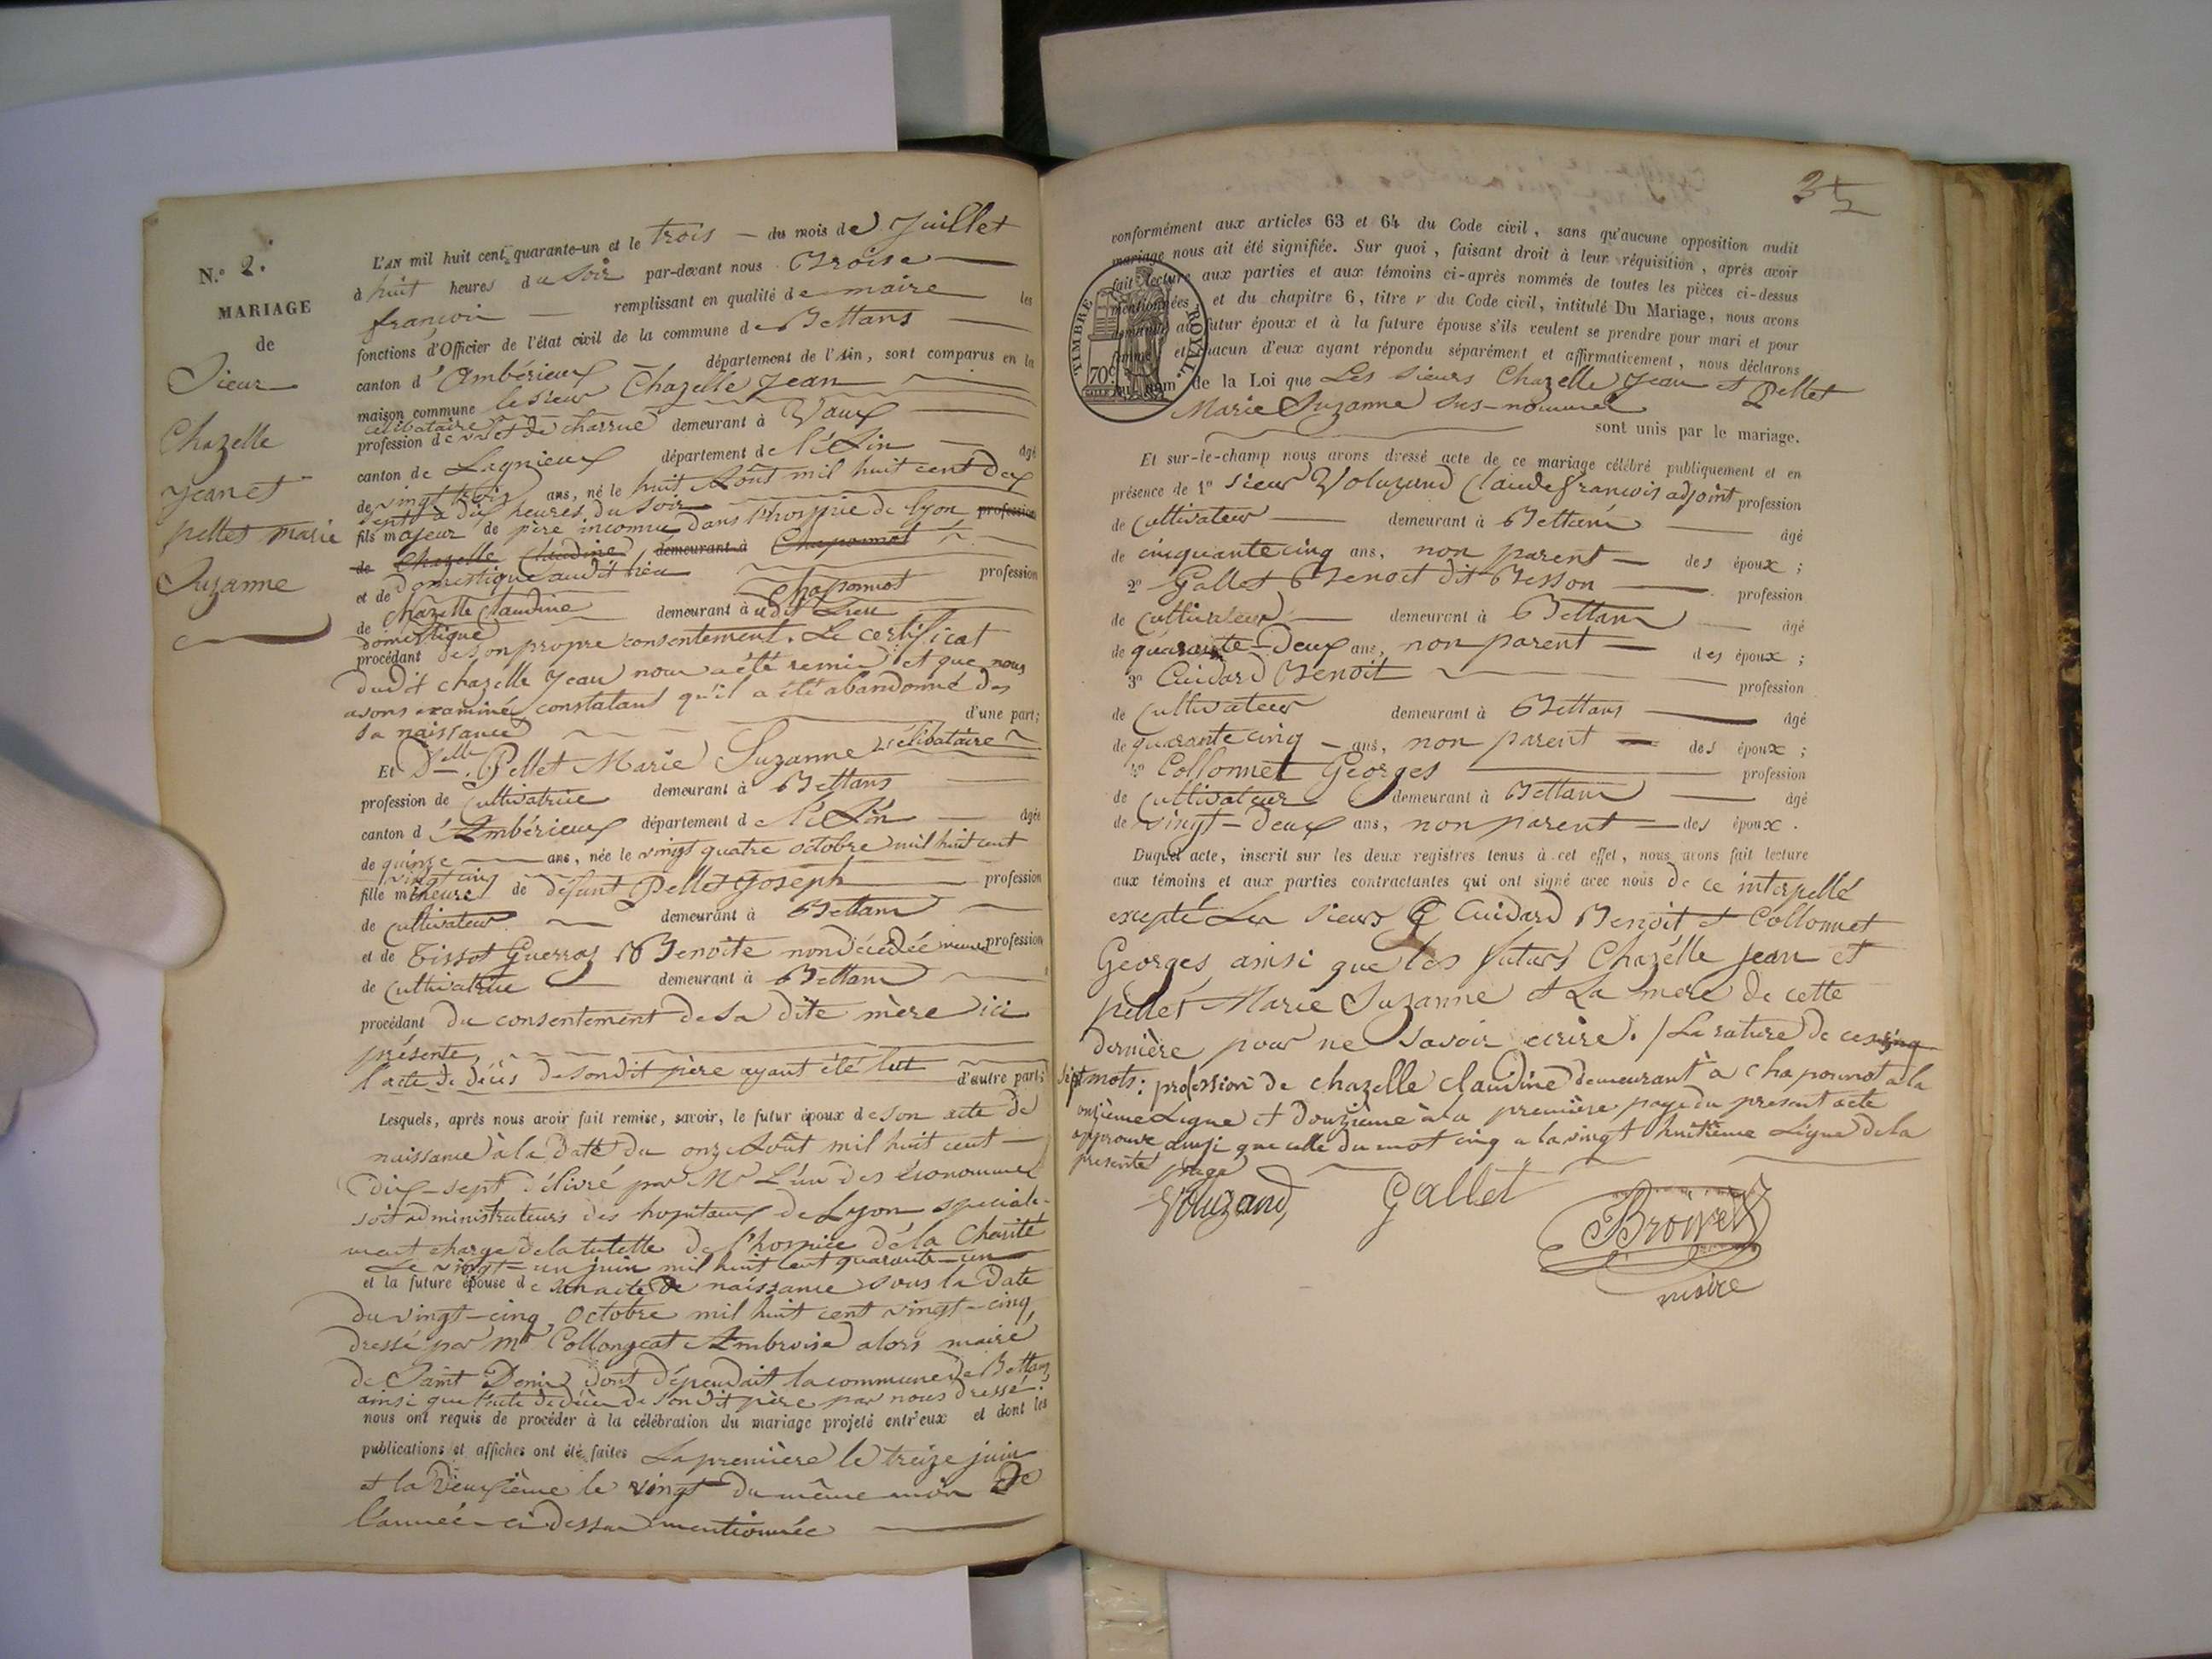 N.° 2.
MARIAGE
de
Sieur
Chazelle
Jean et
pellet marie
Suzanne
L'AN mil huit cent quarante-un et le trois — du mois de Juillet
à huit heures du soir par-devant nous Broise
françois — remplissant en qualité de maire les
fonctions d'Officier de l'état civil de la commune de Bettans
canton d'Ambérieux département de l'Ain, sont comparus en la
maison commune le sieur Chazelle Jean
célibataire
profession de valet de charrue demeurant à Vaux
canton de Lagnieux département de l'Ain âgé
de vingt trois ans, né le huit Août mil huit cent dix
sept à dix heures du soir
fils majeur de père inconnu dans l'hospice de Lyon profession
de Chazelle Claudine demeurant à Chaponnot
domestique audit lieu
et de Chazelle Claudine profession
Chaponnot
de domestique demeurant à udit Lieu
procédant de son propre consentement. Le certificat
dudit chazelle Jean nous a été remis et que nous
avons examiné constatant qu'il a été abandonné des
sa naissance d'une part;
Et Delle Pellet Marie Suzanne célibataire
profession de cultivatrice demeurant à Bettans
canton d'Ambérieux département de l'Ain âgée
de quinze ans, née le vingt quatre octobre mil huit cent
vingt cinq
fille mineure de défunt Pellet Joseph profession
de cultivateur demeurant à Bettans
et de Tissot Guerraz Benoite non décédée profession
de cultivatrice demeurant à Bettans
procédant du consentement de sa dite mère ici
présente
l'acte de décès de son dit père ayant été lut d'autre part;
Lesquels, après nous avoir fait remise, savoir, le futur époux de son acte de
naissance à la date du onze Août mil huit cent
dix-sept délivré par Mr L'un des économmes
soit administrateurs des hopitaux de Lyon speciale-
ment charge de la tutelle de l'hospice de la Charité
Le vingt-un juin mil huit cent quarante-un
et la future épouse de un acte de naissance sous la date
du vingt-cinq Octobre mil huit cent vingt-cinq
dressé par Mr Collongeat Ambroise alors maire
de Saint Denis dont dépendait la commune de Bettans
ainsi que l'acte de décès de son dit père par nous dressé.
nous ont requis de procéder à la célébration du mariage projeté entr'eux et dont les
publications et affiches ont été faites La première le treize juin
et la deuxième le vingt du même mois de
l'année ci dessus mentionnée
conformément aux articles 63 et 64 du Code civil, sans qu'aucune opposition audit
mariage nous ait été signifiée. Sur quoi, faisant droit à leur réquisition, après avoir
fait lecture aux parties et aux témoins ci-après nommés de toutes les pièces ci-dessus
mentionnées, et du chapitre 6, titre V du Code civil, intitulé Du Mariage, nous avons
demandé au futur époux et à la future épouse s'ils veulent se prendre pour mari et pour
femme et chacun d'eux ayant répondu séparément et affirmativement, nous déclarons
au nom de la Loi que Les sieurs Chazelle Jean et Pellet
Marie Suzanne sus-nommés
sont unis par le mariage.
TIMBRE ROYAL.
70c
Et sur-le-champ nous avons dressé acte de ce mariage célébré publiquement et en
présence de 1° sieur Voluzand Claude françois adjoint profession
de cultivateur demeurant à Bettans âgé
de cinquante cinq ans, non parent des époux;
2° Gallet Benoit dit Besson profession
de cultivateur demeurant à Bettans âgé
de quarante-deux ans, non parent des époux;
3° Cuidard Benoit profession
de cultivateur demeurant à Bettans âgé
de quarante cinq ans, non parent des époux;
4° Collonnet Georges profession
de cultivateur demeurant à Bettans âgé
de vingt-deux ans, non parent des époux.
Duquel acte, inscrit sur les deux registres tenus à cet effet, nous avons fait lecture
aux témoins et aux parties contractantes qui ont signé avec nous de ce interpellé
excepté Les sieurs Cuidard Benoit et Collonnet
Georges ainsi que les futurs Chazelle Jean et
pellet Marie Suzanne et La mère de cette
dernière pour ne savoir écrire. / La rature de ces cinq
sept mots: profession de chazelle claudine demeurant à chaponnot à la
onzième Ligne et douzième à la première page du present acte
approuvé ainsi que celle du mot cinq a la vingt huitième Ligne de la
presente page
Voluzand, Gallet Broise
maire